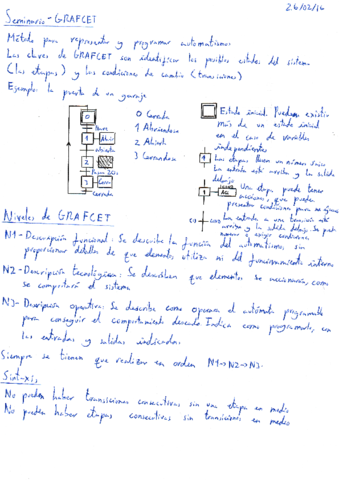 Seminario-GRAFCET
26/02/14
Método para representar y programar automatismos
Las claves de GRAFCET son identificar los posibles estados del sistema
(las etapas) y las condiciones de cambio (transiciones)
Ejemplo: la puerta de un garaje
0
1 Abrir
2
3 Cerrar
Cerrada
0 Cerrada
1 Abriéndose
2 Abierta
3 Cerrándose
Estado inicial. Pueden existir
más de un estado inicial
en el caso de variables
independientes
Las etapas llevan un número único
La entrada está arriba y la salida
debajo
Una etapa puede tener
acciones, que pueden
presentar condiciones
La entrada a una transición está
arriba y la salida debajo. Se puede
Niveles de GRAFCET
N1-Descripción funcional: Se describe la función del automatismo, sin
proporcionar detalles de que elementos utiliza ni del funcionamiento interno
N2-Descripción tecnológica: Se describen que elementos se accionarán, como
se comportará el sistema
N3-Descripción operativa: Se describe como operará el autómata programable
para conseguir el comportamiento deseado. Indica como programarlo, con
las entradas y salidas indicadas.
Siempre se tienen que realizar en orden N1→N2→N3.
Sintaxis
No pueden haber transiciones consecutivas sin una etapa en medio
No pueden haber etapas consecutivas sin transiciones en medio